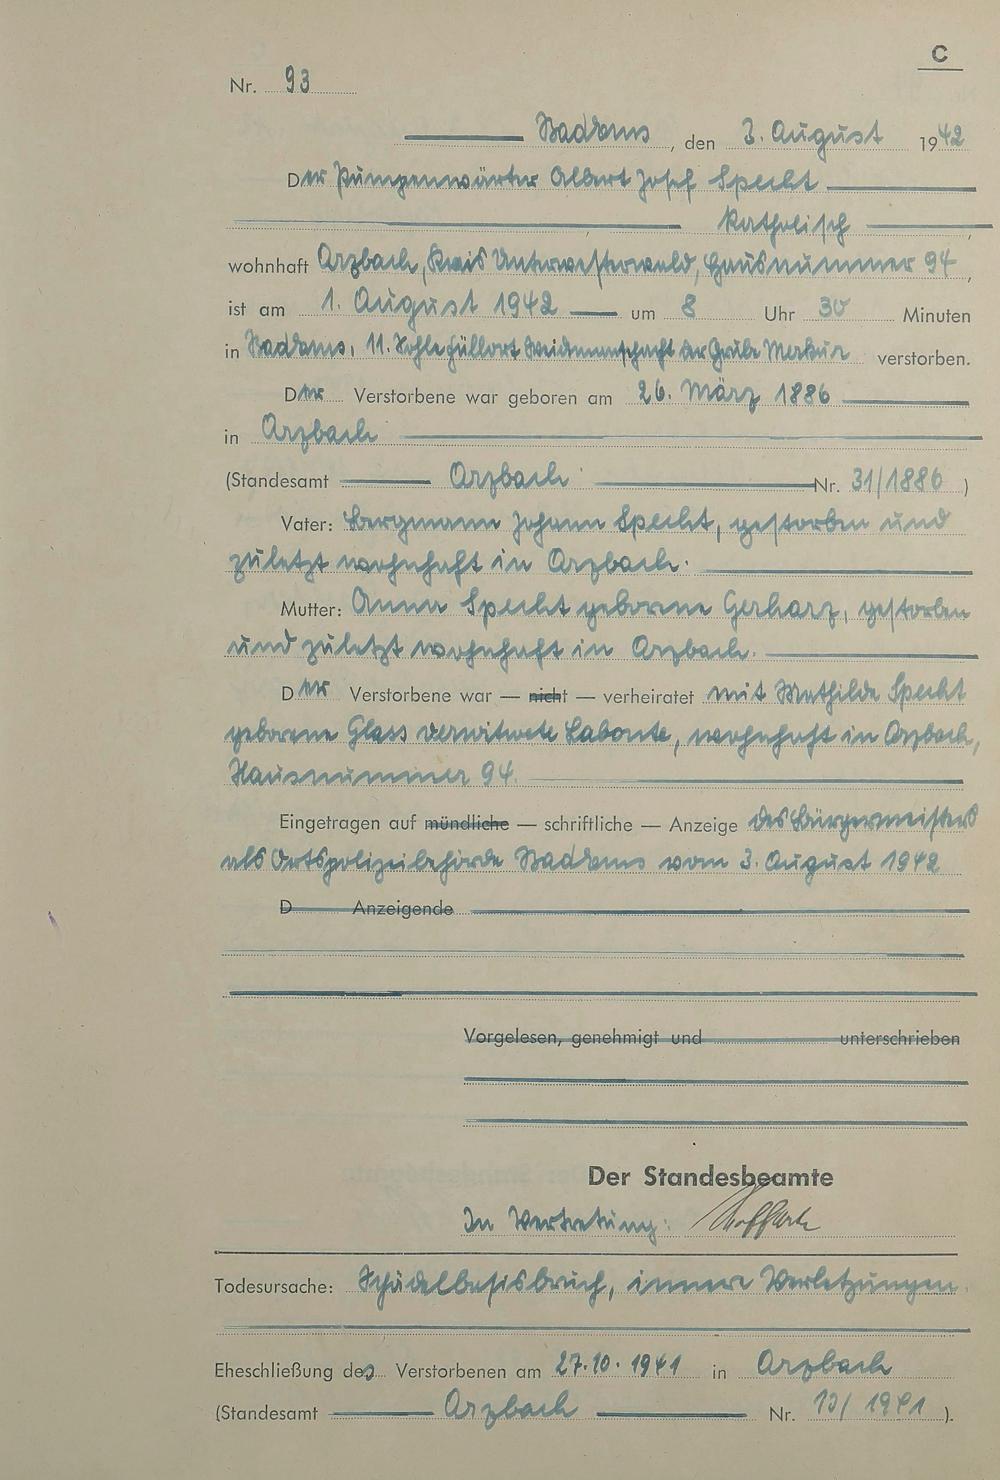 C
Nr. 93
Bad Ems, den 3. August 1942
Der Pumpenwärter Albert Josef Specht
katholisch
wohnhaft Arzbach, Kreis Unterwesterwald, Hausnummer 94,
ist am 1. August 1942 um 8 Uhr 30 Minuten
in Bad Ems, 11. Sohle Füllort Weidmannschacht der Grube Merkur verstorben.
Der Verstorbene war geboren am 26. März 1886
in Arzbach
(Standesamt Arzbach Nr. 31/1886 )
Vater: Bergmann Johann Specht, gestorben und
zuletzt wohnhaft in Arzbach.
Mutter: Anna Specht geborene Gerharz, gestorben
und zuletzt wohnhaft in Arzbach.
Der Verstorbene war — nicht — verheiratet mit Mathilde Specht
geborene Glass verwitwete Labonte, wohnhaft in Arzbach,
Hausnummer 94.
Eingetragen auf mündliche — schriftliche — Anzeige des Bürgermeisters
als Ortspolizeibehörde Bad Ems vom 3. August 1942
D Anzeigende
Vorgelesen, genehmigt und unterschrieben
Der Standesbeamte
In Vertretung:
Todesursache: Schädelbasisbruch, innere Verletzungen.
Eheschließung des Verstorbenen am 27.10.1941 in Arzbach
(Standesamt Arzbach Nr. 13/1941 ).